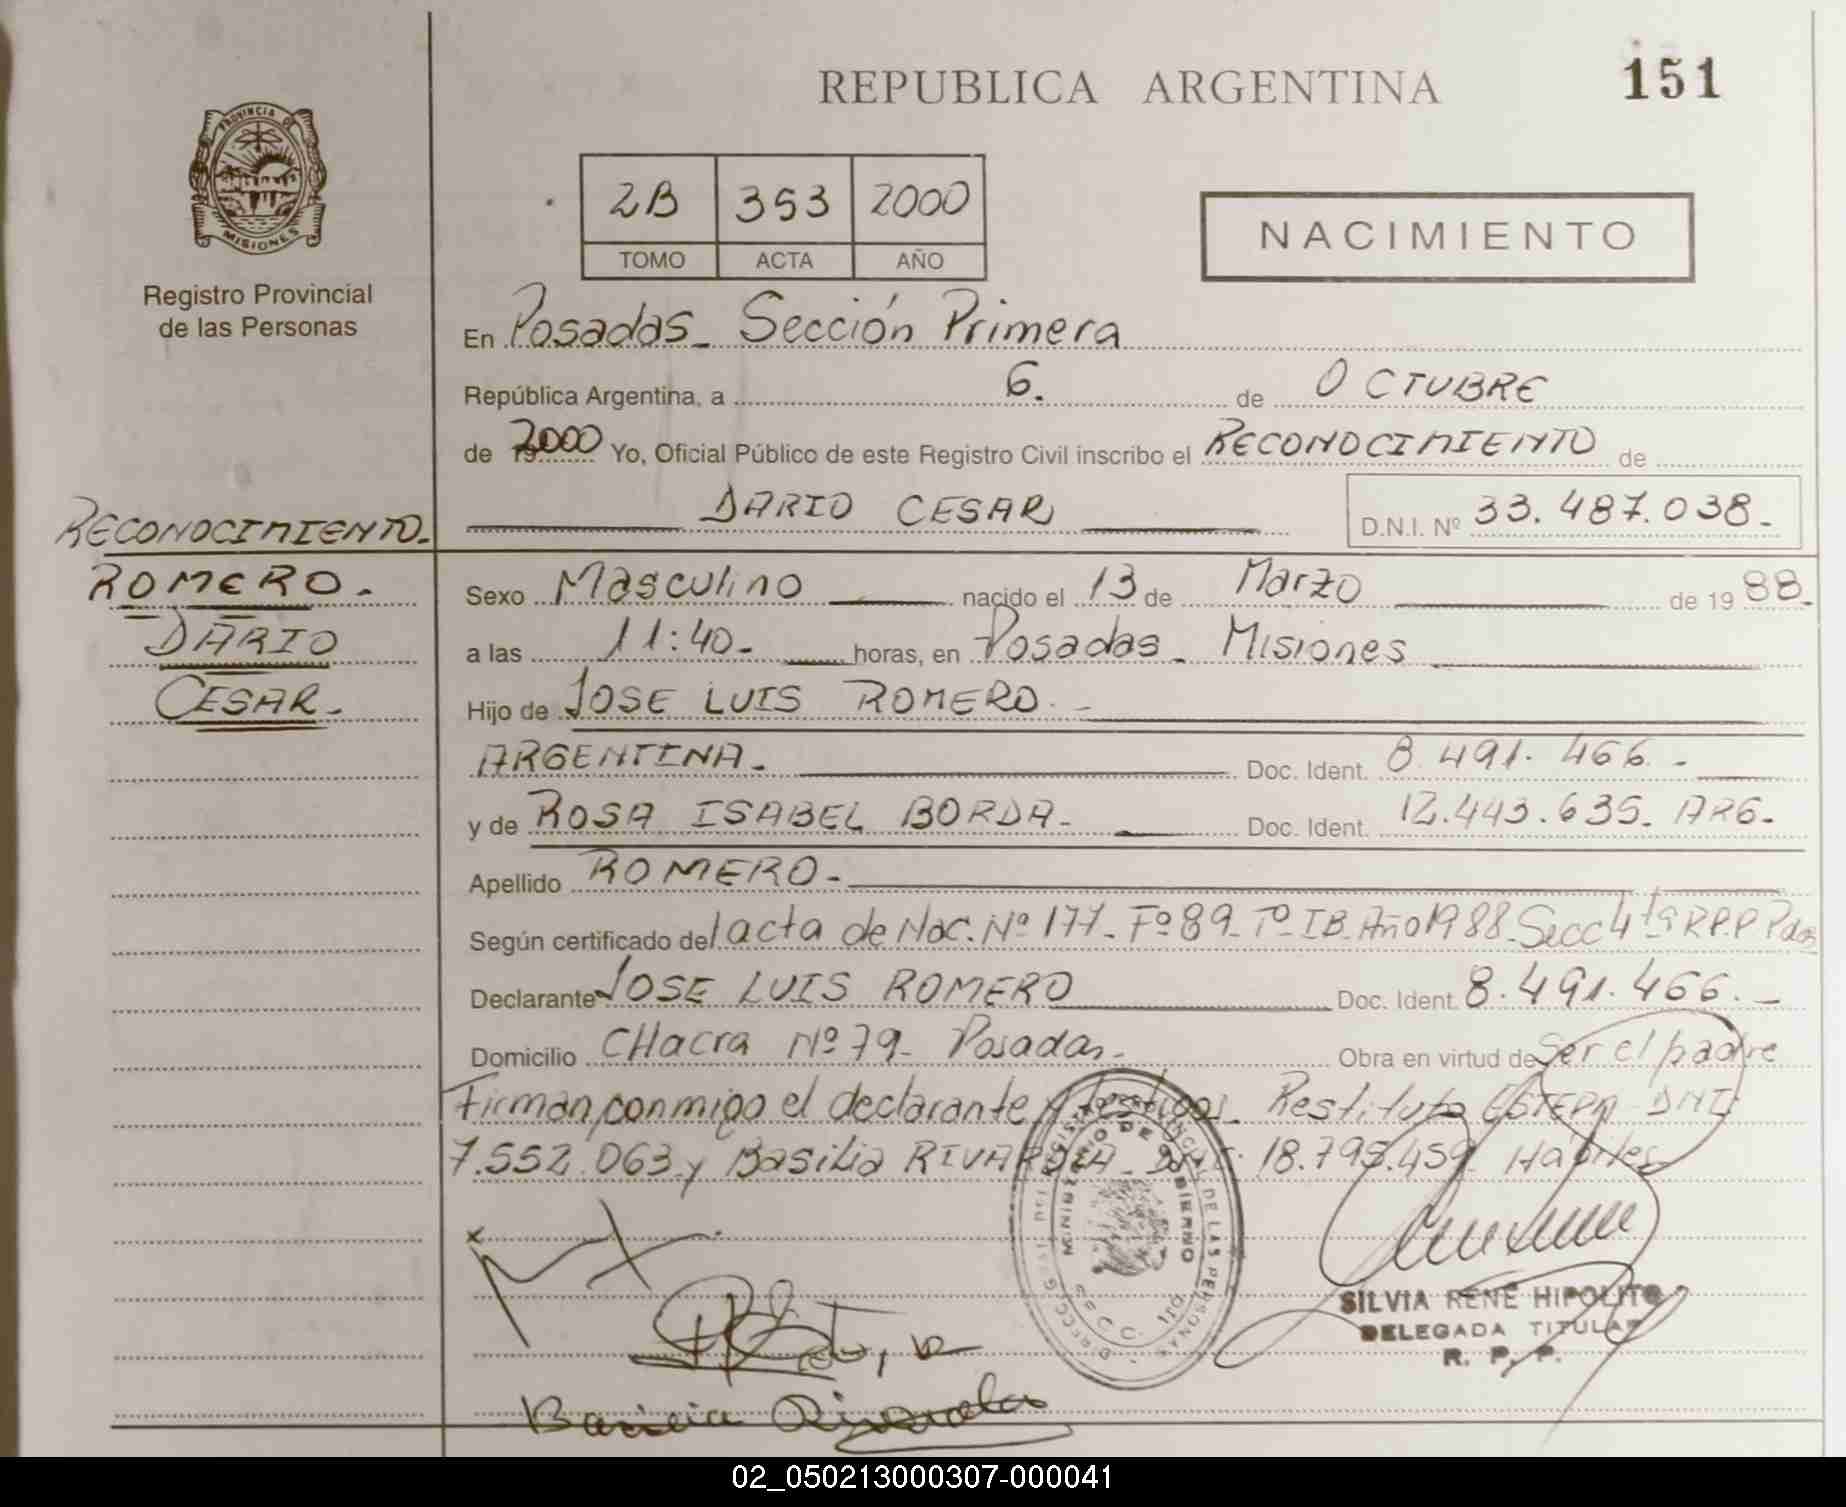 REPUBLICA ARGENTINA
151
PROVINCIA DE
MISIONES
Registro Provincial
de las Personas
2B 353 2000
TOMO ACTA AÑO
NACIMIENTO
En Posadas_ Sección Primera
República Argentina, a 6. de OCTUBRE
de 2000 Yo, Oficial Público de este Registro Civil inscribo el RECONOCIMIENTO de
DARIO CESAR D.N.I. Nº 33.487.038.-
RECONOCIMIENTO.-
ROMERO.-
DARIO
CESAR.-
Sexo Masculino nacido el 13 de Marzo de 1988.
a las 11:40.- horas, en Posadas_ Misiones
Hijo de JOSE LUIS ROMERO.-
ARGENTINA.- Doc. Ident. 8.491.466.-
y de ROSA ISABEL BORDA.- Doc. Ident. 12.443.635. ARG.-
Apellido ROMERO.-
Según certificado del acta de Nac. Nº 177_ Fº 89_ Tº IB_ Año 1988_ Secc 4ta R.P.P Pdas
Declarante JOSE LUIS ROMERO Doc. Ident. 8.491.466.-
Domicilio CHacra Nº 79_ Posadas.- Obra en virtud de Ser el padre
Firman conmigo el declarante y testigos_ Restituto DNI
7.552.063 y Basilia RIVAROLA_ 18.795.459. Hábiles
MINISTERIO DE GOBIERNO
SILVIA RENE HIPOLITO
DELEGADA TITULAR
R. P. P.
02_050213000307-000041